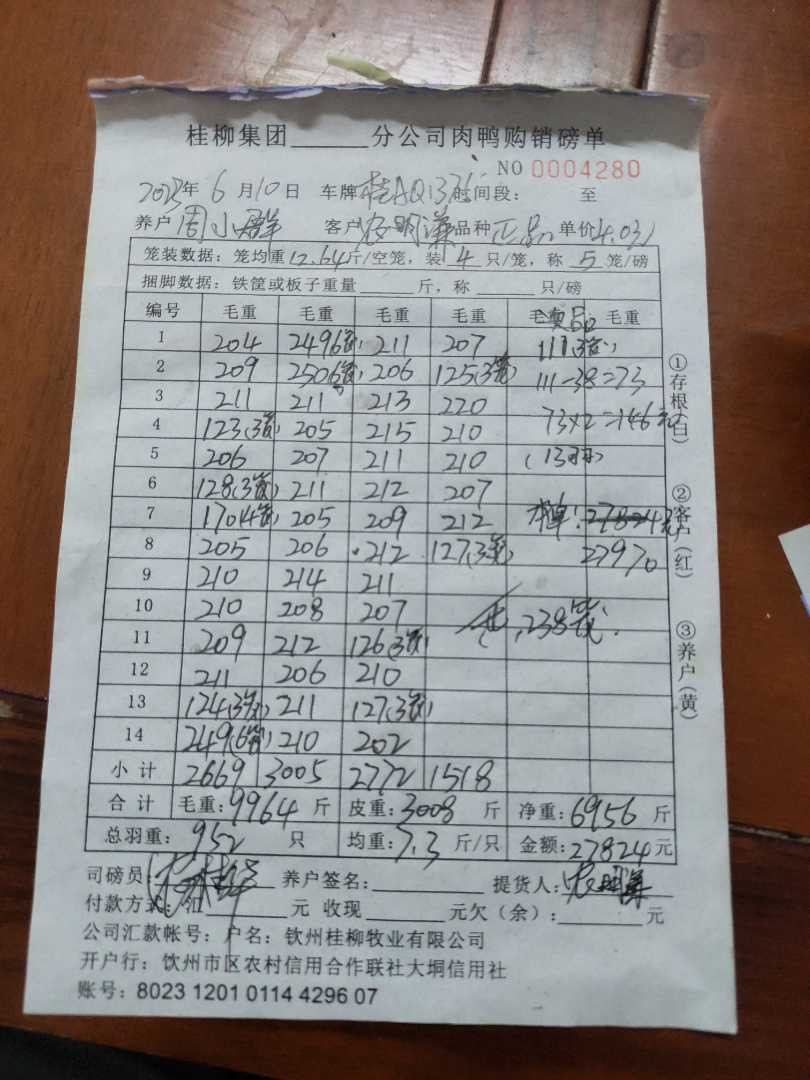 桂柳集团______分公司肉鸭购销磅单
NO 0004280
2023年 6月10日 车牌 桂AQ1376 时间段: 至
养户 周小群 客户 农明谦 品种 正品 单价 4.03)
笼装数据: 笼均重12.64斤/空笼, 装 4 只/笼, 称 5 笼/磅
捆脚数据: 铁筐或板子重量______斤, 称______只/磅
编号 毛重 毛重 毛重 毛重 毛重 毛重
1 204 249(6笼) 211 207 111(3笼)
2 209 250(6笼) 206 125(3笼) 111-38=73
3 211 211 213 220
4 123(3笼) 205 215 210 73×2=146元
5 206 207 211 210 (13只)
6 128(3笼) 211 212 207
7 170(4笼) 205 209 212 本单: 27824元
8 205 206 212 127(3笼) 27970
9 210 214 211
10 210 208 207 238笼.
11 209 212 126(3笼)
12 211 206 210
13 124(3笼) 211 127(3笼)
14 249(6笼) 210 202
小计 2669 3005 2772 1518
合计 毛重: 9964 斤 皮重: 3008 斤 净重: 6956 斤
总羽重: 952 只 均重: 7.3 斤/只 金额: 27824 元
司磅员: 养户签名: 提货人: 农明谦
付款方式: 扣______元 收现______元欠(余):______元
公司汇款帐号: 户名: 钦州桂柳牧业有限公司
开户行: 钦州市区农村信用合作联社大垌信用社
账号: 8023 1201 0114 4296 07
①存根(白)
②客户(红)
③养户(黄)